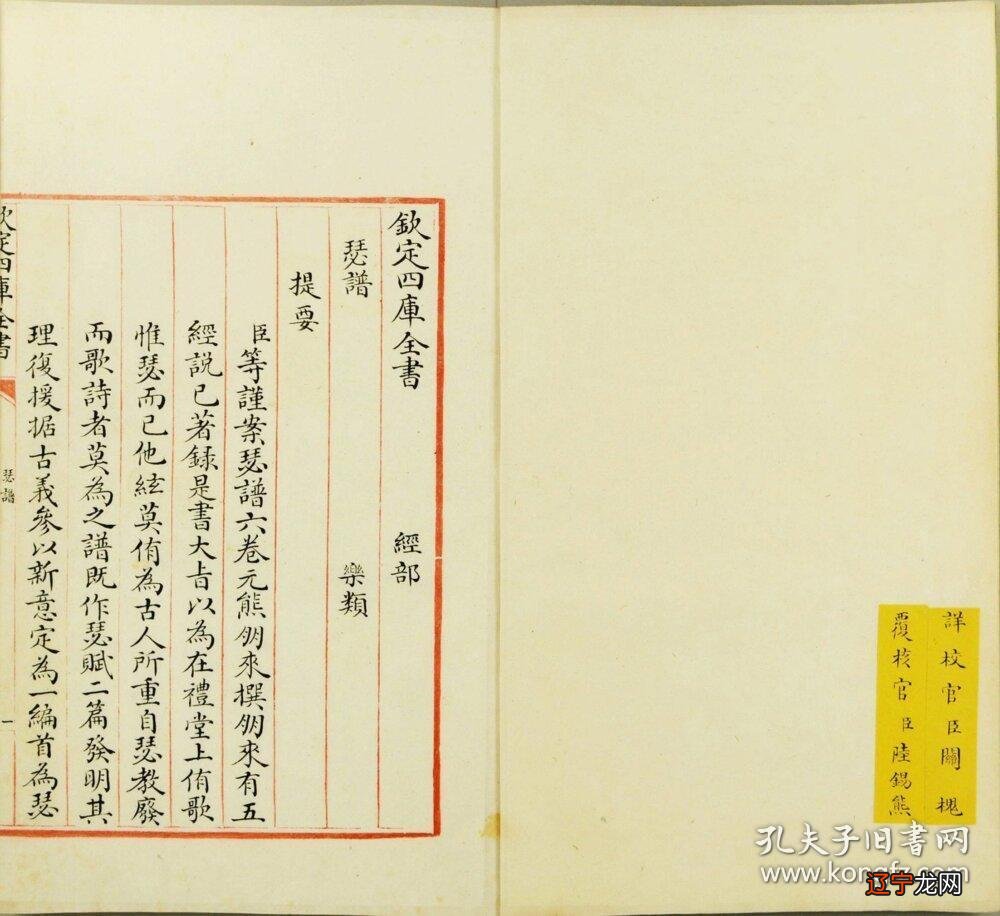 詳校官臣關槐
覆核官臣陸錫熊
欽定四庫全書 經部
瑟譜 樂類
提要
臣等謹案瑟譜六卷元熊朋來撰朋來有五
經說已著錄是書大旨以為在禮堂上侑歌
惟瑟而已他絃莫侑為古人所重自瑟教廢
而歌詩者莫為之譜既作瑟賦二篇發明其
理復援据古義參以新意定為一編首為瑟
欽定四庫全書
瑟譜
一
孔夫子旧书网
www.kongfz.com
辽宁龙网